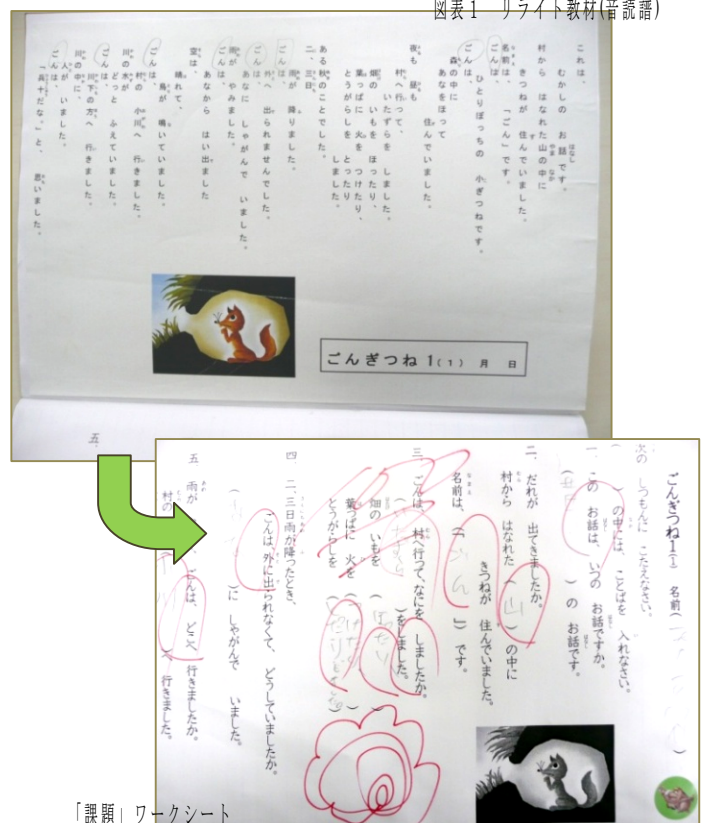 図表1 リライト教材(音読譜)
これは、
むかしの お話です。
村から はなれた山の中に
きつねが 住んでいました。
名前は、「ごん」です。
ごんは、
ひとりぼっちの 小ぎつねです。
森の中に
あなをほって
住んでいました。
夜も 昼も
村へ行って、
いたずらを しました。
畑の いもを ほったり、
葉っぱに 火を つけたり、
とうがらしを とったり
しました。
ある秋のことでした。
二、三日、
雨が 降りました。
ごんは、
外へ 出られませんでした。
ごんは、
あなに しゃがんで いました。
雨が やみました。
ごんは、
あなから はい出ました
空は、
晴れて、
鳥が 鳴いていました。
ごんは、
村の 小川へ 行きました。
川の水が
どっと ふえていました。
ごんは、
川下の方へ 行きました。
川の中に、
人が いました。
ごんは、
「兵十だな。」と、 思いました。
ごんぎつね1(1) 月 日
五
ごんぎつね1(1) 名前( )
次の しつもんに こたえなさい。
( )の中には、ことばを 入れなさい。
一 この お話は、いつの お話ですか。
( )の お話です。
二、だれが 出てきましたか。
村から はなれた(山)の中に
きつねが 住んでいました。
名前は、「(ごん)」です。
三 ごんは、村へ行って、なにを しましたか。
( )をしました。
畑の いもを (ほったり)
葉っぱに 火を ( )
とうがらしを ( )
四 二、三日雨が降ったとき、
ごんは、外に出られなくて、どうしていましたか。
( )に しゃがんで いました。
五 雨が ごんは、どこへ 行きましたか。
村の ( )へ 行きました。
「課題」ワークシート